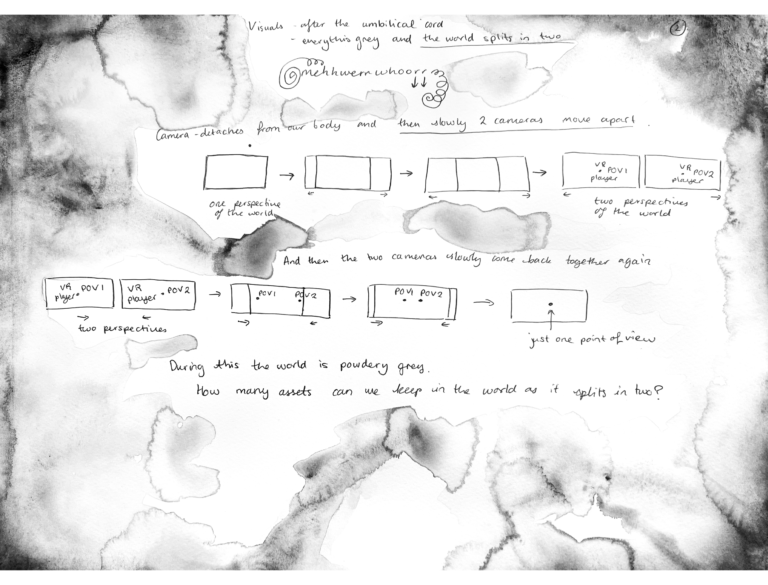 Visuals - after the umbilical cord
2
- everything grey and the world splits in two
mehhwernwhoorr
Camera - detaches from our body and then slowly 2 cameras move apart.
VR POV1
player
VR POV2
player
one perspective
of the world
two perspectives
of the world
And then the two cameras slowly come back together again
VR POV1
player
VR POV2
player
POV1 POV2
POV1 POV2
two perspectives
just one point of view
During this the world is powdery grey.
How many assets can we keep in the world as it splits in two?